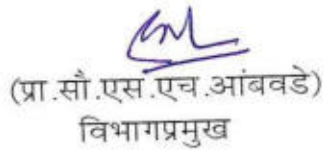 (प्रा.सौ.एस.एच.आंबवडे)
विभागप्रमुख